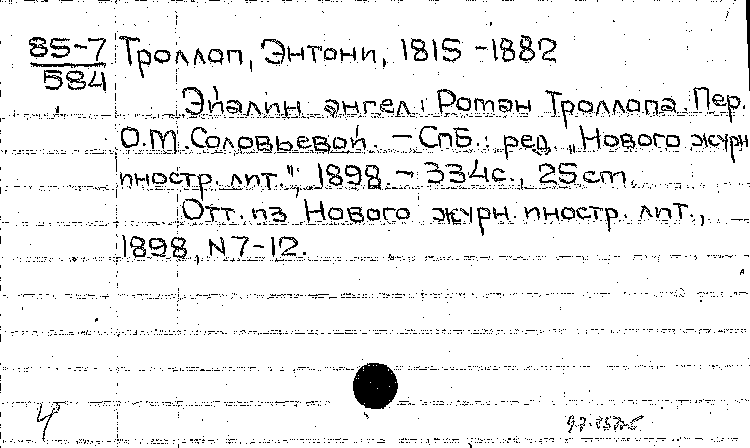 85-7 Троллоп, Энтони, 1815 -1882
584
Эйалин ангел: Роман Троллопа. Пер.
О.М. Соловьевой. – СПб.: ред. „Нового журн
иностр. лит.", 1898. – 334с., 25cm.
Отт. из Нового журн. иностр. лит.,
1898, N 7-12.